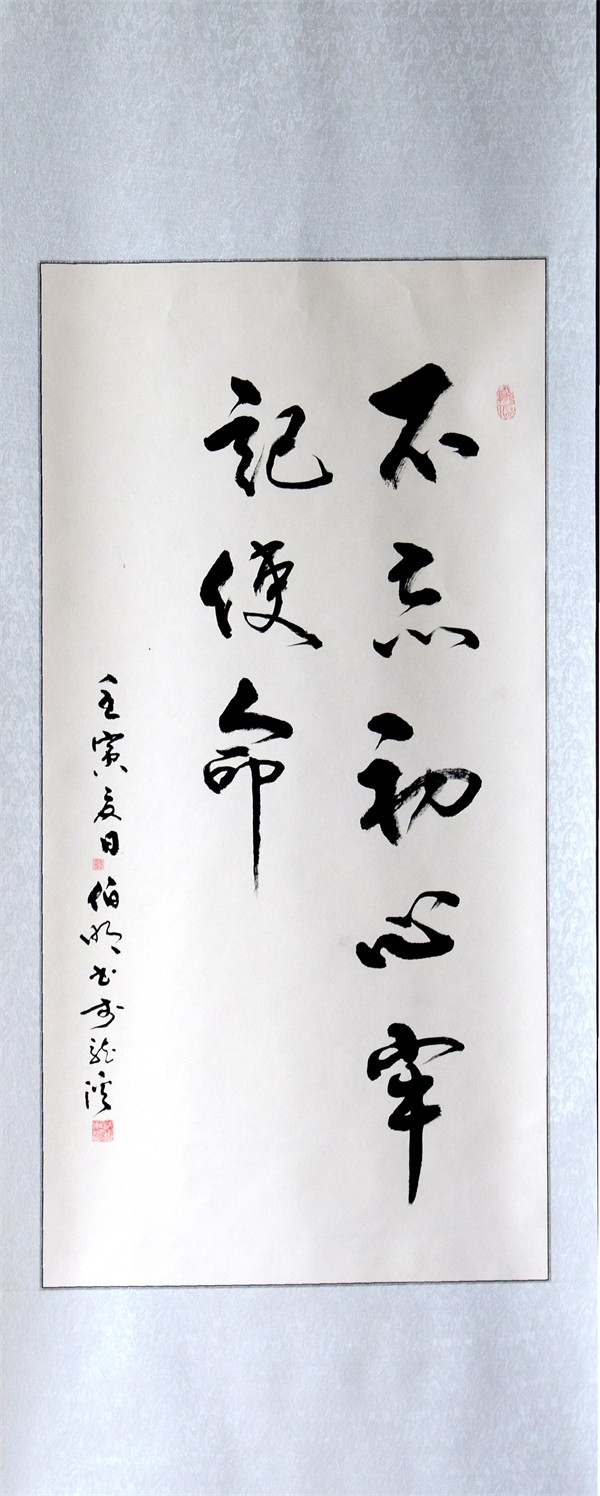 不忘初心牢
記使命
壬寅夏日伯明书於龍溪